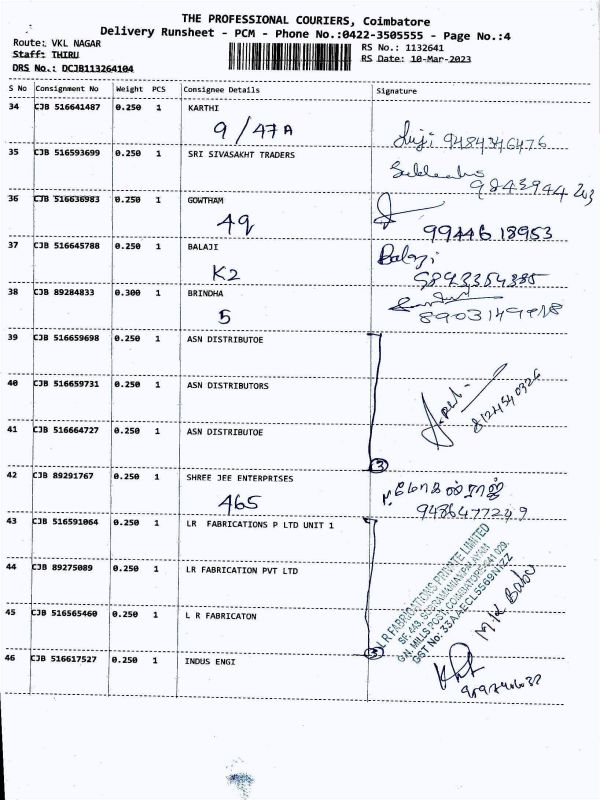 THE PROFESSIONAL COURIERS, Coimbatore
Delivery Runsheet - PCM - Phone No.:0422-3505555 - Page No.:4
Route: VKL NAGAR
RS No.: 1132641
Staff: THIRU
RS Date: 10-Mar-2023
DRS No.: DCJB113264104
S No Consignment No Weight PCS Consignee Details Signature
34 CJB 516641487 0.250 1 KARTHI
9/47A
9484346476
35 CJB 516593699 0.250 1 SRI SIVASAKHT TRADERS
9843944203
36 CJB 516636983 0.250 1 GOWTHAM
49
99446 18953
37 CJB 516645788 0.250 1 BALAJI
Balaji
K2
38 CJB 89284833 0.300 1 BRINDHA
5
39 CJB 516659698 0.250 1 ASN DISTRIBUTOE
40 CJB 516659731 0.250 1 ASN DISTRIBUTORS
8124540326
41 CJB 516664727 0.250 1 ASN DISTRIBUTOE
3
42 CJB 89291767 0.250 1 SHREE JEE ENTERPRISES
465
9486477249
43 CJB 516591064 0.250 1 LR FABRICATIONS P LTD UNIT 1
44 CJB 89275089 0.250 1 LR FABRICATION PVT LTD
45 CJB 516565460 0.250 1 L R FABRICATON
L R FABRICATIONS PRIVATE LIMITED
SF. 443,
G.N. MILLS POST, COIMBATORE-641 029.
GST No: 33AAECL5569N1ZZ
M.K Babu
46 CJB 516617527 0.250 1 INDUS ENGI